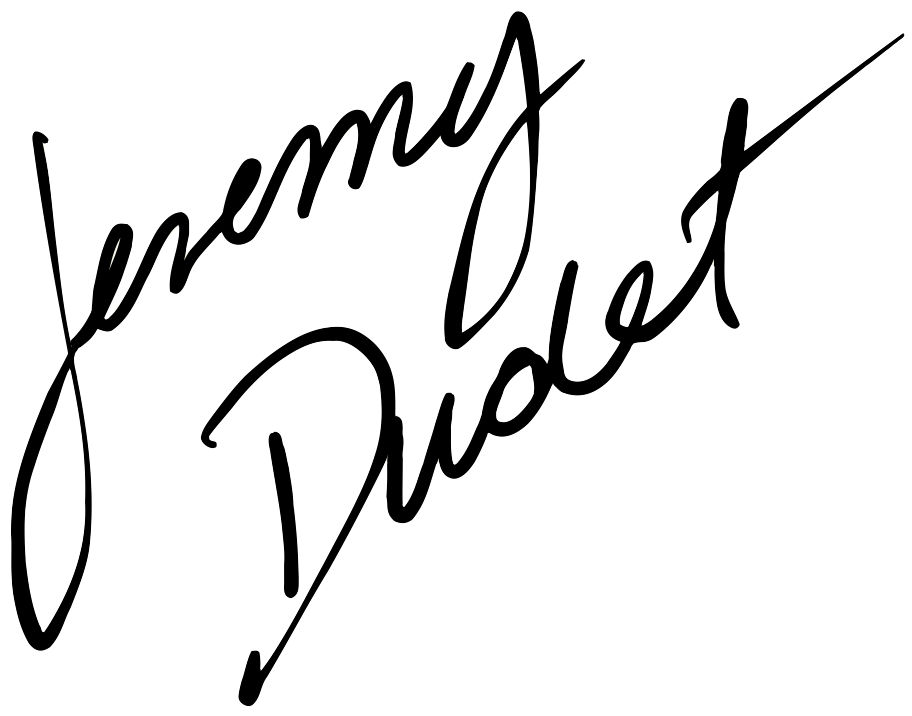 Jeremy
Dudet